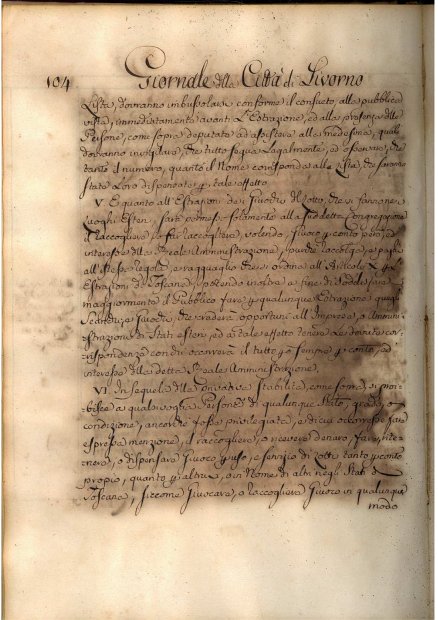 104 Giornale della Città di Livorno
Lista, dovranno imbussolarsi conforme il consueto, alla pubblica
vista, immediatamente avanti l'Estrazione, ed alla presenza delle
Persone, come sopra deputate ad assistere alle medesime, quali
dovranno invigilare, che tutto segua legalmente, ed osservare, che
tanto il numero, quanto il Nome corrisponda alla Lista, che saranno
state Loro dispensate p tale effetto.
V. E quanto all'Estrazioni de i Giuochi del Lotto, che si faranno ne
Luoghi Esteri, sarà permesso solamente alla suddetta Congregazione
il raccogliere, o far raccogliere, volendo, Giuoco p conto, ed
interesse della Reale Amministrazione, purché raccolga, e paghi
all'istessa regola, e ragguaglio che si ordina all'Articolo X p l'
Estrazioni di Toscana, potendo inoltre a fine di sodisfare
maggiormente il Pubblico fare p qualunque Estrazione quegli
Scandij, e Giuochi, che crederà opportuni all'Impresa, o Ammini
strazione di Stati esteri, ed a tale effetto tenere le dovute cor-
rispondenze con chi occorrerà il tutto p sempre p conto, ed
interesse della detta Reale Amministrazione.
VI. In sequela della Privativa stabilita, come sopra, si proi-
bisce a qualsivoglia Persona di qualunque stato, grado, o
condizione, ancorché fosse privilegiata, e di cui occorresse farne
espressa menzione, il raccogliere, o ricevere denaro, fare, rite-
nere, o dispensare Giuoco p uso, e servizio di Lotti tanto p conto
proprio, quanto p altrui, o in Nome di altri negli Stati di
Toscana, siccome Giuocare, o raccogliere Giuoco in qualunque
modo